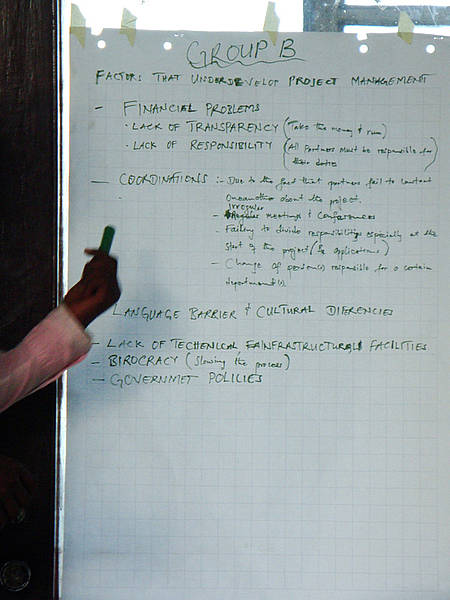 GROUP B
FACTORS THAT UNDERDEVELOP PROJECT MANAGEMENT
- FINANCIAL PROBLEMS
· LACK OF TRANSPARENCY (Take the money & run)
· LACK OF RESPONSIBILITY (All partners must be responsible for
their duties
- COORDINATIONS :- Due to the fact that partners fail to contact
One another about the project.
Irregular
- meetings & Conferences
- Failing to divide responsibilities especially at the
start of the project ( applications)
- Change of person(s) responsible for a certain
department(s)
LANGUAGE BARRIER & CULTURAL DIFERENCIES
- LACK OF TECHENICAL, INFRASTRUCTURAL FACILITIES
- BIROCRACY (Slowing the process)
- GOVERNMET POLICIES